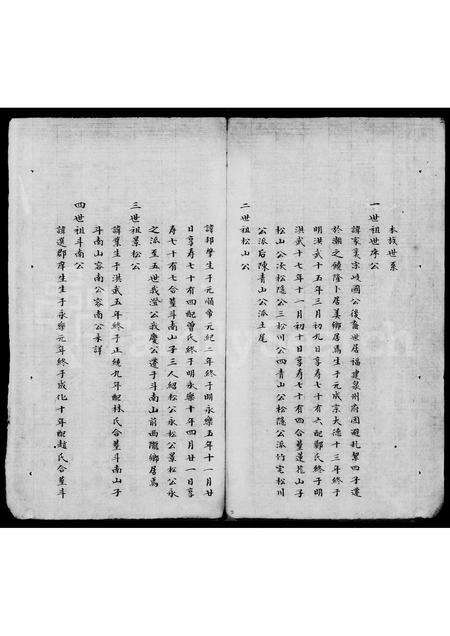 本族世系
一世祖世序公
諱家美宗岐國公後裔世居福建泉州府因避乱挈四子遷
於潮之饒隆卜居美鄉居焉生于元成宗大德十三年終于
明洪武十五年三月初九日享寿七十有六配鄭氏終于明
洪武十七年十一月初十日享寿七十有四合葬蓮花山子
松山公次松隱公三松川公四青山公松隱公派竹宅松川
公派后陳青山公派土尾
二世祖松山公
諱邦學生于元順帝元紀二年終于明永樂五年十一月廿
日享寿七十有四配曾氏終于明永樂十年四月廿一日享
寿七十有七合葬斗南山子三人紹松公永松公景松公永
之派至五世我澄公我慶公遷于斗南山前西隴鄉居焉
三世祖景松公
諱業生于洪武五年終于正統九年配林氏合葬斗南山子
斗南山容南公容南公未詳
四世祖斗南公
諱選郡庠生生于永樂元年終于成化十年配趙氏合葬斗